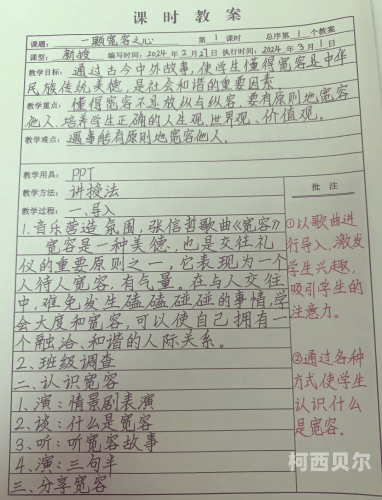 课时教案
课题: 一颗宽容之心 第1课时 总序第1个教案
课型: 新授 编写时间: 2024年2月27日 执行时间: 2024年3月1日
教学目标: 通过古今中外故事,使学生懂得宽容是中华
民族传统美德,是社会和谐的重要因素。
教学重点: 懂得宽容不是放纵与纵容,要有原则地宽容
他人,培养学生正确的人生观、世界观、价值观。
教学难点: 遇事能有原则地宽容他人。
教学用具: PPT
教学方法: 讲授法
教学过程: 一.导入
1.音乐营造氛围,张信哲歌曲《宽容》
宽容是一种美德,也是交往礼
仪的重要原则之一,它表现为一个
人待人宽容,有气量。在与人交往
中,难免发生磕磕碰碰的事情,学
会大度和宽容,可以使自己拥有一
个融洽、和谐的人际关系。
2、班级调查
二、认识宽容
1、演:情景剧表演
2、谈:什么是宽容
3、听:听宽容故事
4、演:三句半
三、分享宽容
批注
①以歌曲进
行导入,激发
学生兴趣,
吸引学生的
注意力。
②通过各种
方式使学生
认识什么
是宽容。
柯西贝尔